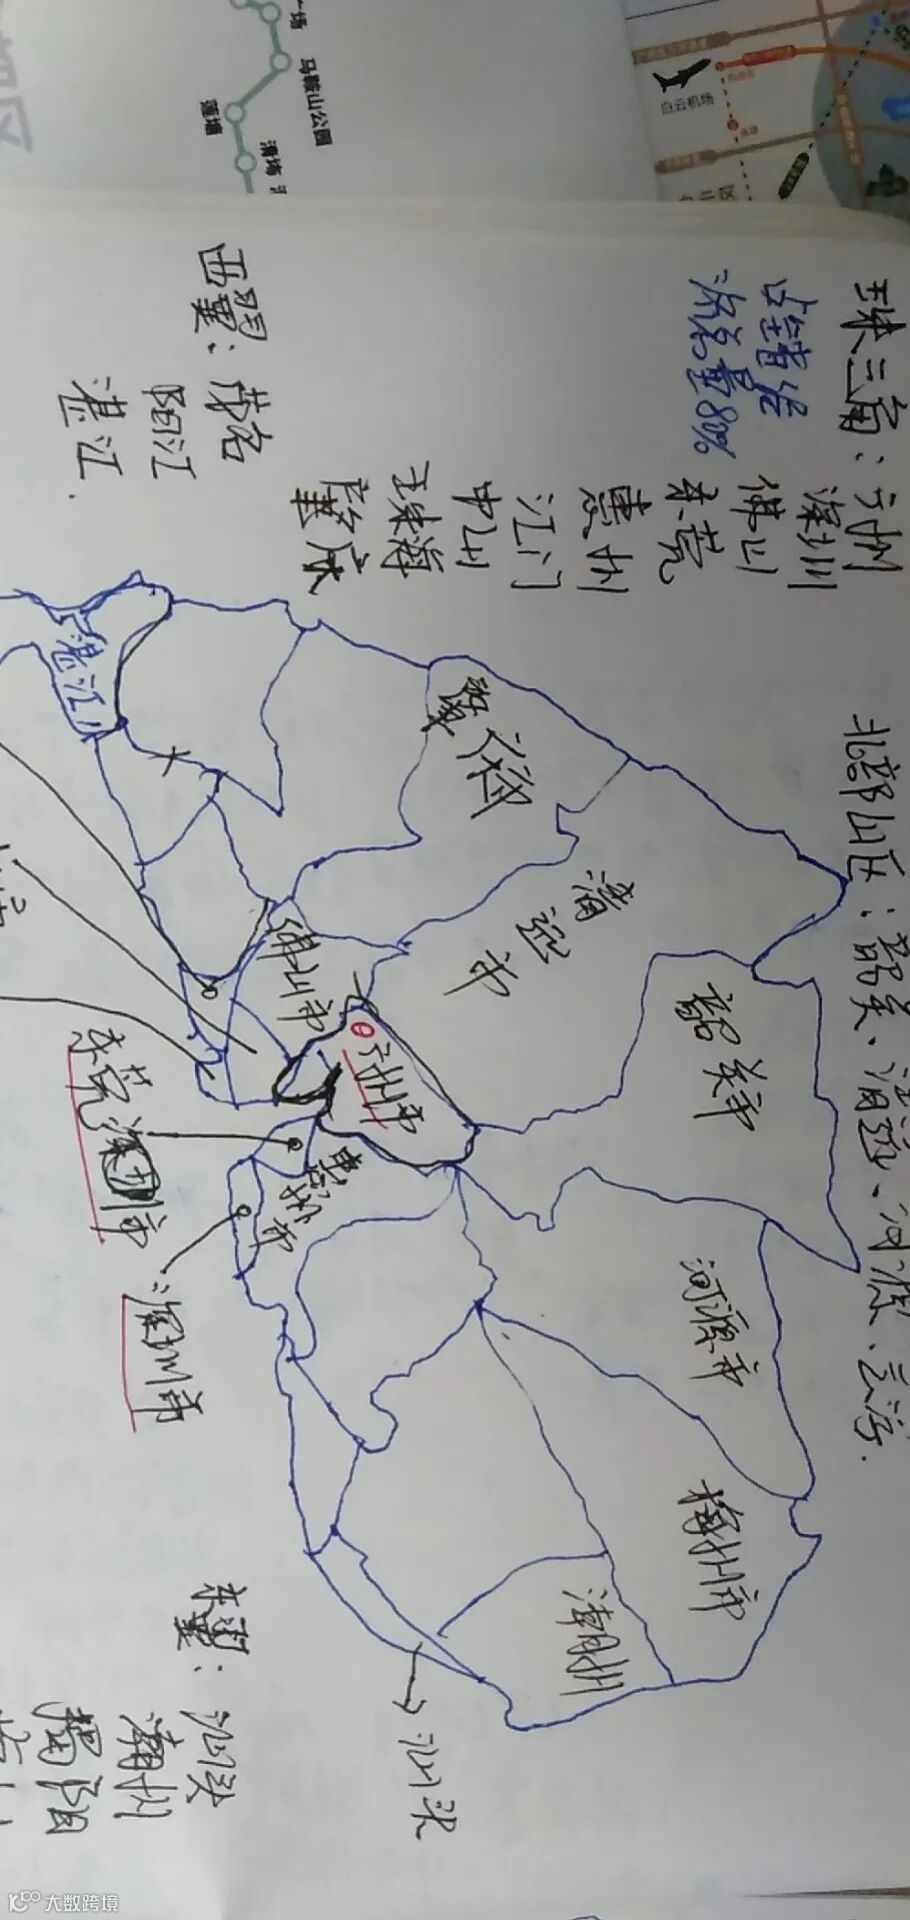 马鞍山公园
莲塘
白云机场
珠三角：广州
深圳
佛山
东莞
惠州
江门
中山
珠海
肇庆
占全省经
济总量80%
西翼：茂名
阳江
湛江.
北部山区：韶关、清远、河源、云浮.
韶关市
清远市
河源市
梅州市
潮州
佛山市
广州市
惠州市
湛江
东莞深圳市
深圳市
→汕头
东翼：汕头
潮州
揭阳
大数跨境